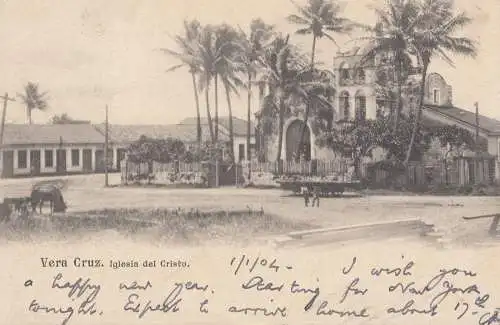 Vera Cruz. Iglesia del Cristo.
1/1/04 I wish you
a happy new year. Darting for New York
tonight. Expect to arrive home about 17th